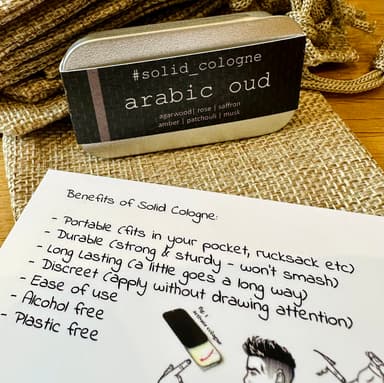 #solid_cologne
arabic oud
agarwood| rose | saffron
amber | patchouli | musk
Benefits of Solid Cologne:
- Portable (fits in your pocket, rucksack etc)
- Durable (strong & sturdy - won't smash)
- Long Lasting (a little goes a long way)
- Discreet (apply without drawing attention)
- Ease of use
- Alcohol free
- Plastic free